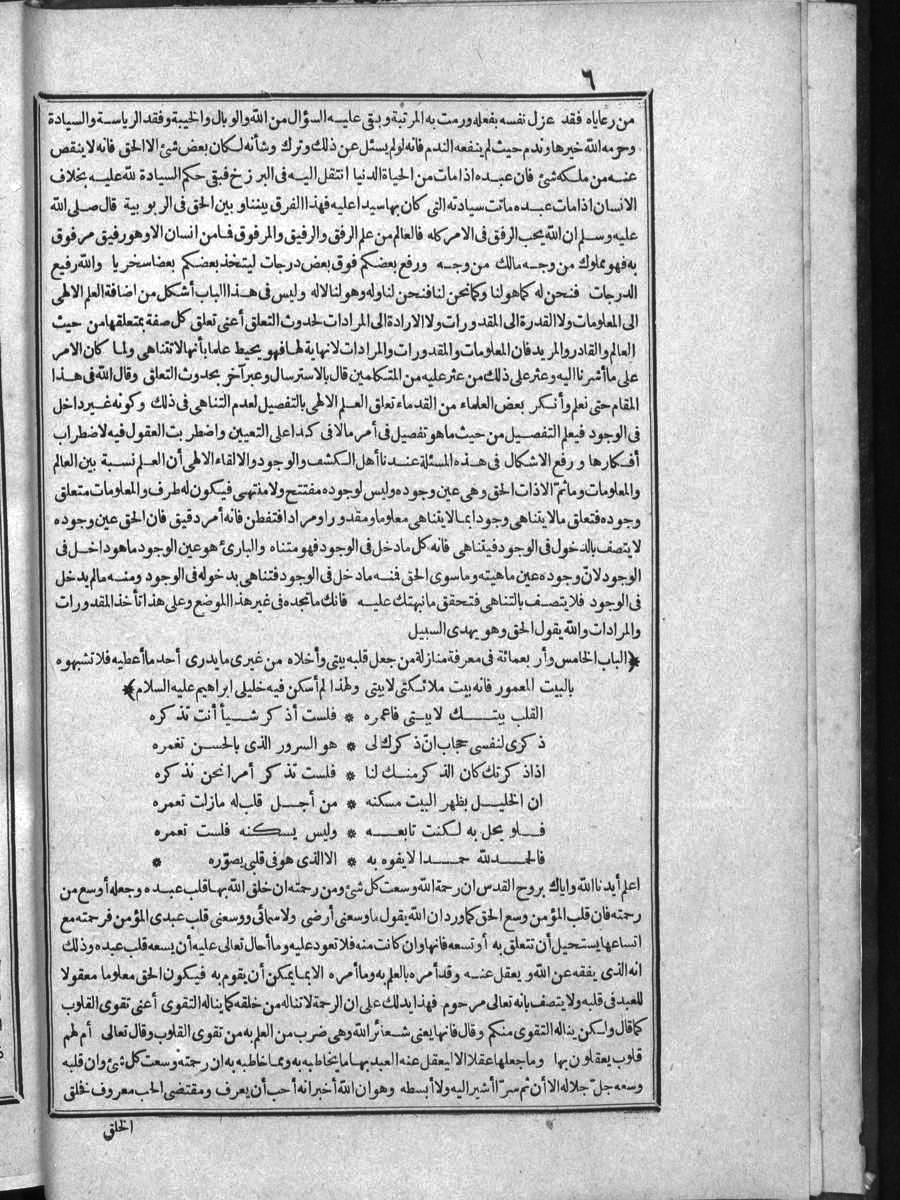 ٦
من رعاياه فقد عزل نفسه بفعله ورمت به المرتبة وبقي عليه السؤال من الله والوبال والخيبة وفقد الرياسة والسيادة
وحرمه الله خيرها وندم حيث لم ينفعه الندم فانه لو لم يسئل عن ذلك وترك وشأنه لكان بعض شئ الا الحق فانه لا ينقص
عنه من ملكه شئ فان عبده اذا مات من الحياة الدنيا انتقل اليه في البرزخ فبقي حكم السيادة لله عليه بخلاف
الانسان اذا مات عبده ماتت سيادته التي كان بها سيدا عليه فهذا الفرق بيننا وبين الحق في الربوبية قال صلى الله
عليه وسلم ان الله يحب الرفق في الامر كله فالعالم من علم الرفق والرفيق والمرفوق فما من انسان الا وهو رفيق مرفوق
به فهو مملوك من وجه مالك من وجه ورفع بعضكم فوق بعض درجات ليتخذ بعضكم بعضا سخريا والله رفيع
الدرجات فنحن له كما هو لنا وكما نحن لنا فنحن لنا وله وهو لنا لاله وليس في هذا الباب أشكل من اضافة العلم الالهي
الى المعلومات ولا القدرة الى المقدورات ولا الارادة الى المرادات لحدوث التعلق أعني تعلق كل صفة بمتعلقها من حيث
العالم والقادر والمريد فان المعلومات والمقدورات والمرادات لا نهاية لها فهو يحيط علما بأنها لا تتناهى ولما كان الامر
على ما أشرنا اليه وعثر على ذلك من عثر عليه من المتكلمين قال بالاسترسال وعبر آخر بحدوث التعلق وقال الله في هذا
المقام حتى نعلم وأنكر بعض العلماء من القدماء تعلق العلم الالهي بالتفصيل لعدم التناهي في ذلك وكونه غير داخل
في الوجود فيعلم التفصيل من حيث ما هو تفصيل في أمر ما لا في كذا على التعيين واضطربت العقول فيه لاضطراب
أفكارها ورفع الاشكال في هذه المسئلة عندنا أهل الكشف والوجود والالقاء الالهي أن العلم نسبة بين العالم
والمعلومات وما ثم الا ذات الحق وهي عين وجوده وليس لوجوده مفتتح ولا منتهى فيكون له طرف والمعلومات متعلق
وجوده فتعلق ما لا يتناهى وجودا بما لا يتناهى معلوما ومقدورا ومرادا فتفطن فانه أمر دقيق فان الحق عين وجوده
لا يتصف بالدخول في الوجود فيتناهى فانه كل ما دخل في الوجود فهو متناه والبارئ هو عين الوجود ما هو داخل في
الوجود لانّ وجوده عين ماهيته وما سوى الحق فمنه ما دخل في الوجود فتناهى بدخوله في الوجود ومنه ما لم يدخل
في الوجود فلا يتصف بالتناهي فتحقق ما نبهتك عليه فانك ما تجده في غير هذا الموضع وعلى هذا تأخذ المقدورات
والمرادات والله يقول الحق وهو يهدى السبيل
﴿الباب الخامس وأربعمائة في معرفة منازلة من جعل قلبه بيتي وأخلاه من غيرى ما يدرى أحد ما أعطيه فلا تشبهوه
بالبيت المعمور فانه بيت ملائكتي لا بيتي ولهذا لم أسكن فيه خليلي ابراهيم عليه السلام﴾
القلب بيتـك لا بيتي فاعمره * فلست أذكر شيأ أنت تذكره
ذكرى لنفسي حجاب انّ ذكرك لى * هو السرور الذى بالحسن تغمره
اذا ذكرتك كان الذكر منك لنا * فلست تذكر أمرا نحن نذكره
ان الخليل بظهر البيت مسكنه * من أجل قلب له ما زلت تعمره
فلو يحل به لكنت تابعه * وليس يسكنه فلست تعمره
فالحمد لله حمدا لا يفوه به * الا الذى هو في قلبي يصوّره *
اعلم أيدنا الله واياك بروح القدس ان رحمة الله وسعت كل شئ ومن رحمته ان خلق الله بها قلب عبده وجعله أوسع من
رحمته فان قلب المؤمن وسع الحق كما ورد ان الله يقول ما وسعني أرضي ولا سمائي ووسعني قلب عبدى المؤمن فرحمته مع
اتساعها يستحيل أن تتعلق به أو تسعه فانها وان كانت منه فلا تعود عليه وما أحال تعالى عليه أن يسعه قلب عبده وذلك
انه الذى يفقه عن الله ويعقل عنه وقد أمره بالعلم به وما أمره الا بما يمكن أن يقوم به فيكون الحق معلوما معقولا
للعبد في قلبه ولا يتصف بانه تعالى مرحوم فهذا يدلك على ان الرحمة لا تناله من خلقه كما يناله التقوى أعني تقوى القلوب
كما قال ولكن يناله التقوى منكم وقال فانها يعني شعائر الله وهي ضرب من العلم به من تقوى القلوب وقال تعالى أم لهم
قلوب يعقلون بها وما جعلها عقلا الا ليعقل عنه العبد بها ما يخاطبه به ومما خاطبه به ان رحمته وسعت كل شئ وان قلبه
وسعه جلّ جلاله الا أن ثم سرّا أشير اليه ولا أبسطه وهو ان الله أخبر انه أحب أن يعرف ومقتضى الحب معروف فخلق
الخلق